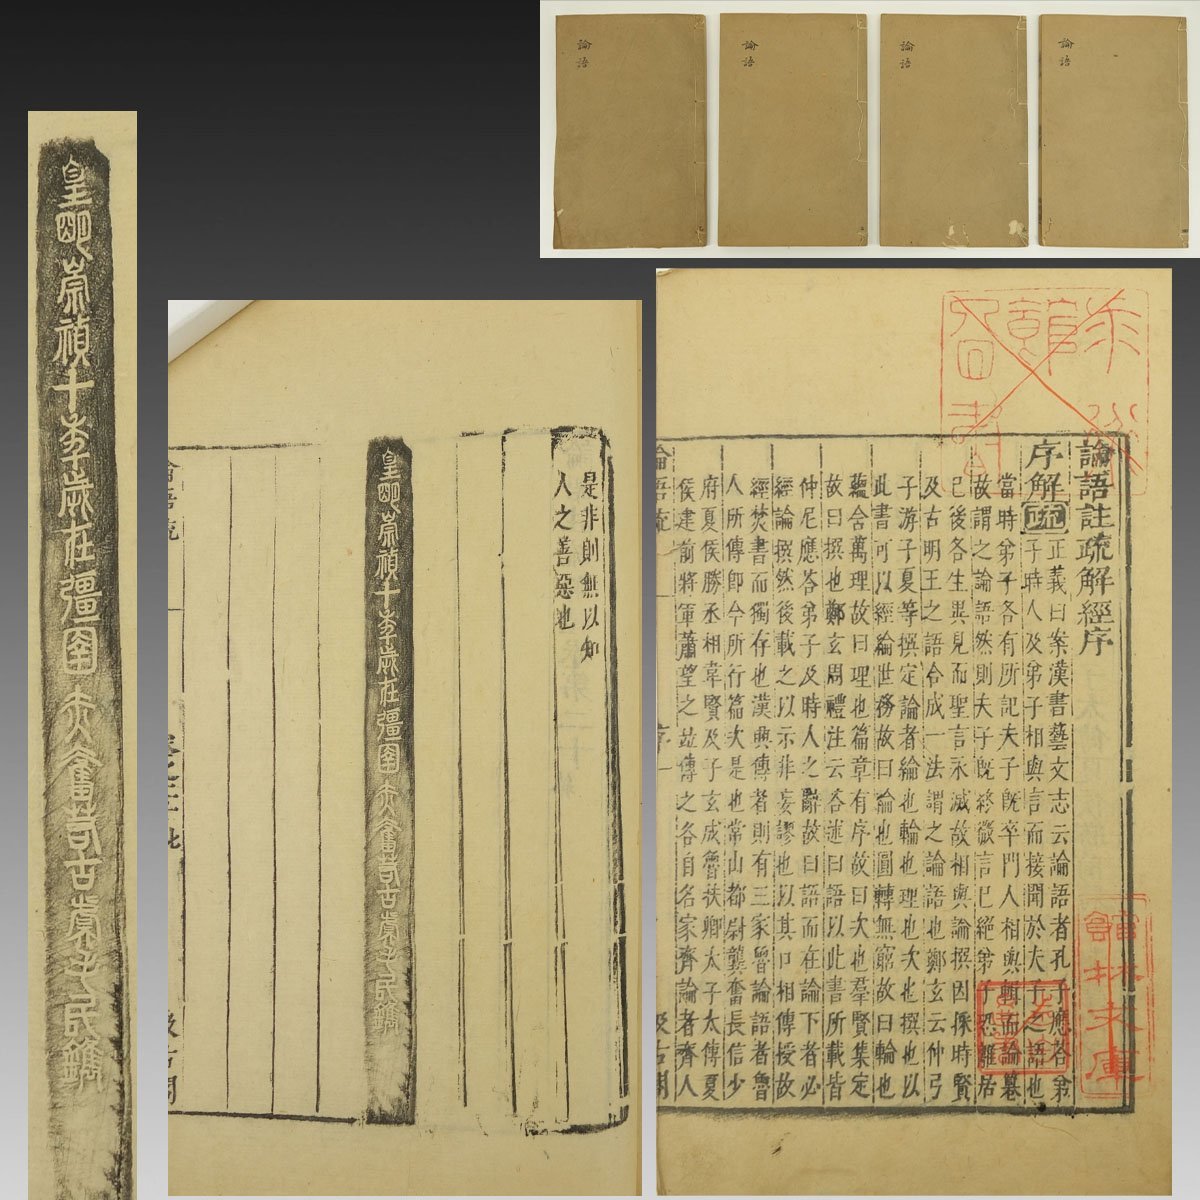 論語
論語
論語
論語
皇明崇禎十年歲在彊圉赤奮若古虞毛氏鐫
是非則無以知
人之善惡也
皇明崇禎十年歲在彊圉赤奮若古虞毛氏鐫
論語疏 汲古閣
論語註疏解經序
序解 疏 正義曰案漢書藝文志云論語者孔子應荅弟
子時人及弟子相與言而接聞於夫子之語也
當時弟子各有所記夫子既卒門人相與輯而論纂
故謂之論語然則夫子既終微言已絕弟子恐離居
已後各生異見而聖言永滅故相與論撰因採時賢
及古明王之語合成一法謂之論語也鄭玄云仲弓
子游子夏等撰定論者綸也輪也理也次也撰也以
此書可以經綸世務故曰綸也圓轉無窮故曰輪也
蘊含萬理故曰理也篇章有序故曰次也羣賢集定
故曰撰也鄭玄周禮注云荅述曰語以此書所載皆
仲尼應荅弟子及時人之辭故曰語而在論下者必
經論撰然後載之以示非妄謬也以其口相傳授故
經焚書而獨存也漢興傳者則有三家魯論語者魯
人所傳即今所行篇次是也常山都尉龔奮長信少
府夏侯勝丞相韋賢及子玄成魯扶卿太子太傅夏
侯建前將軍蕭望之並傳之各自名家齊論者齊人
論語疏 序 一 汲古閣
林文庫